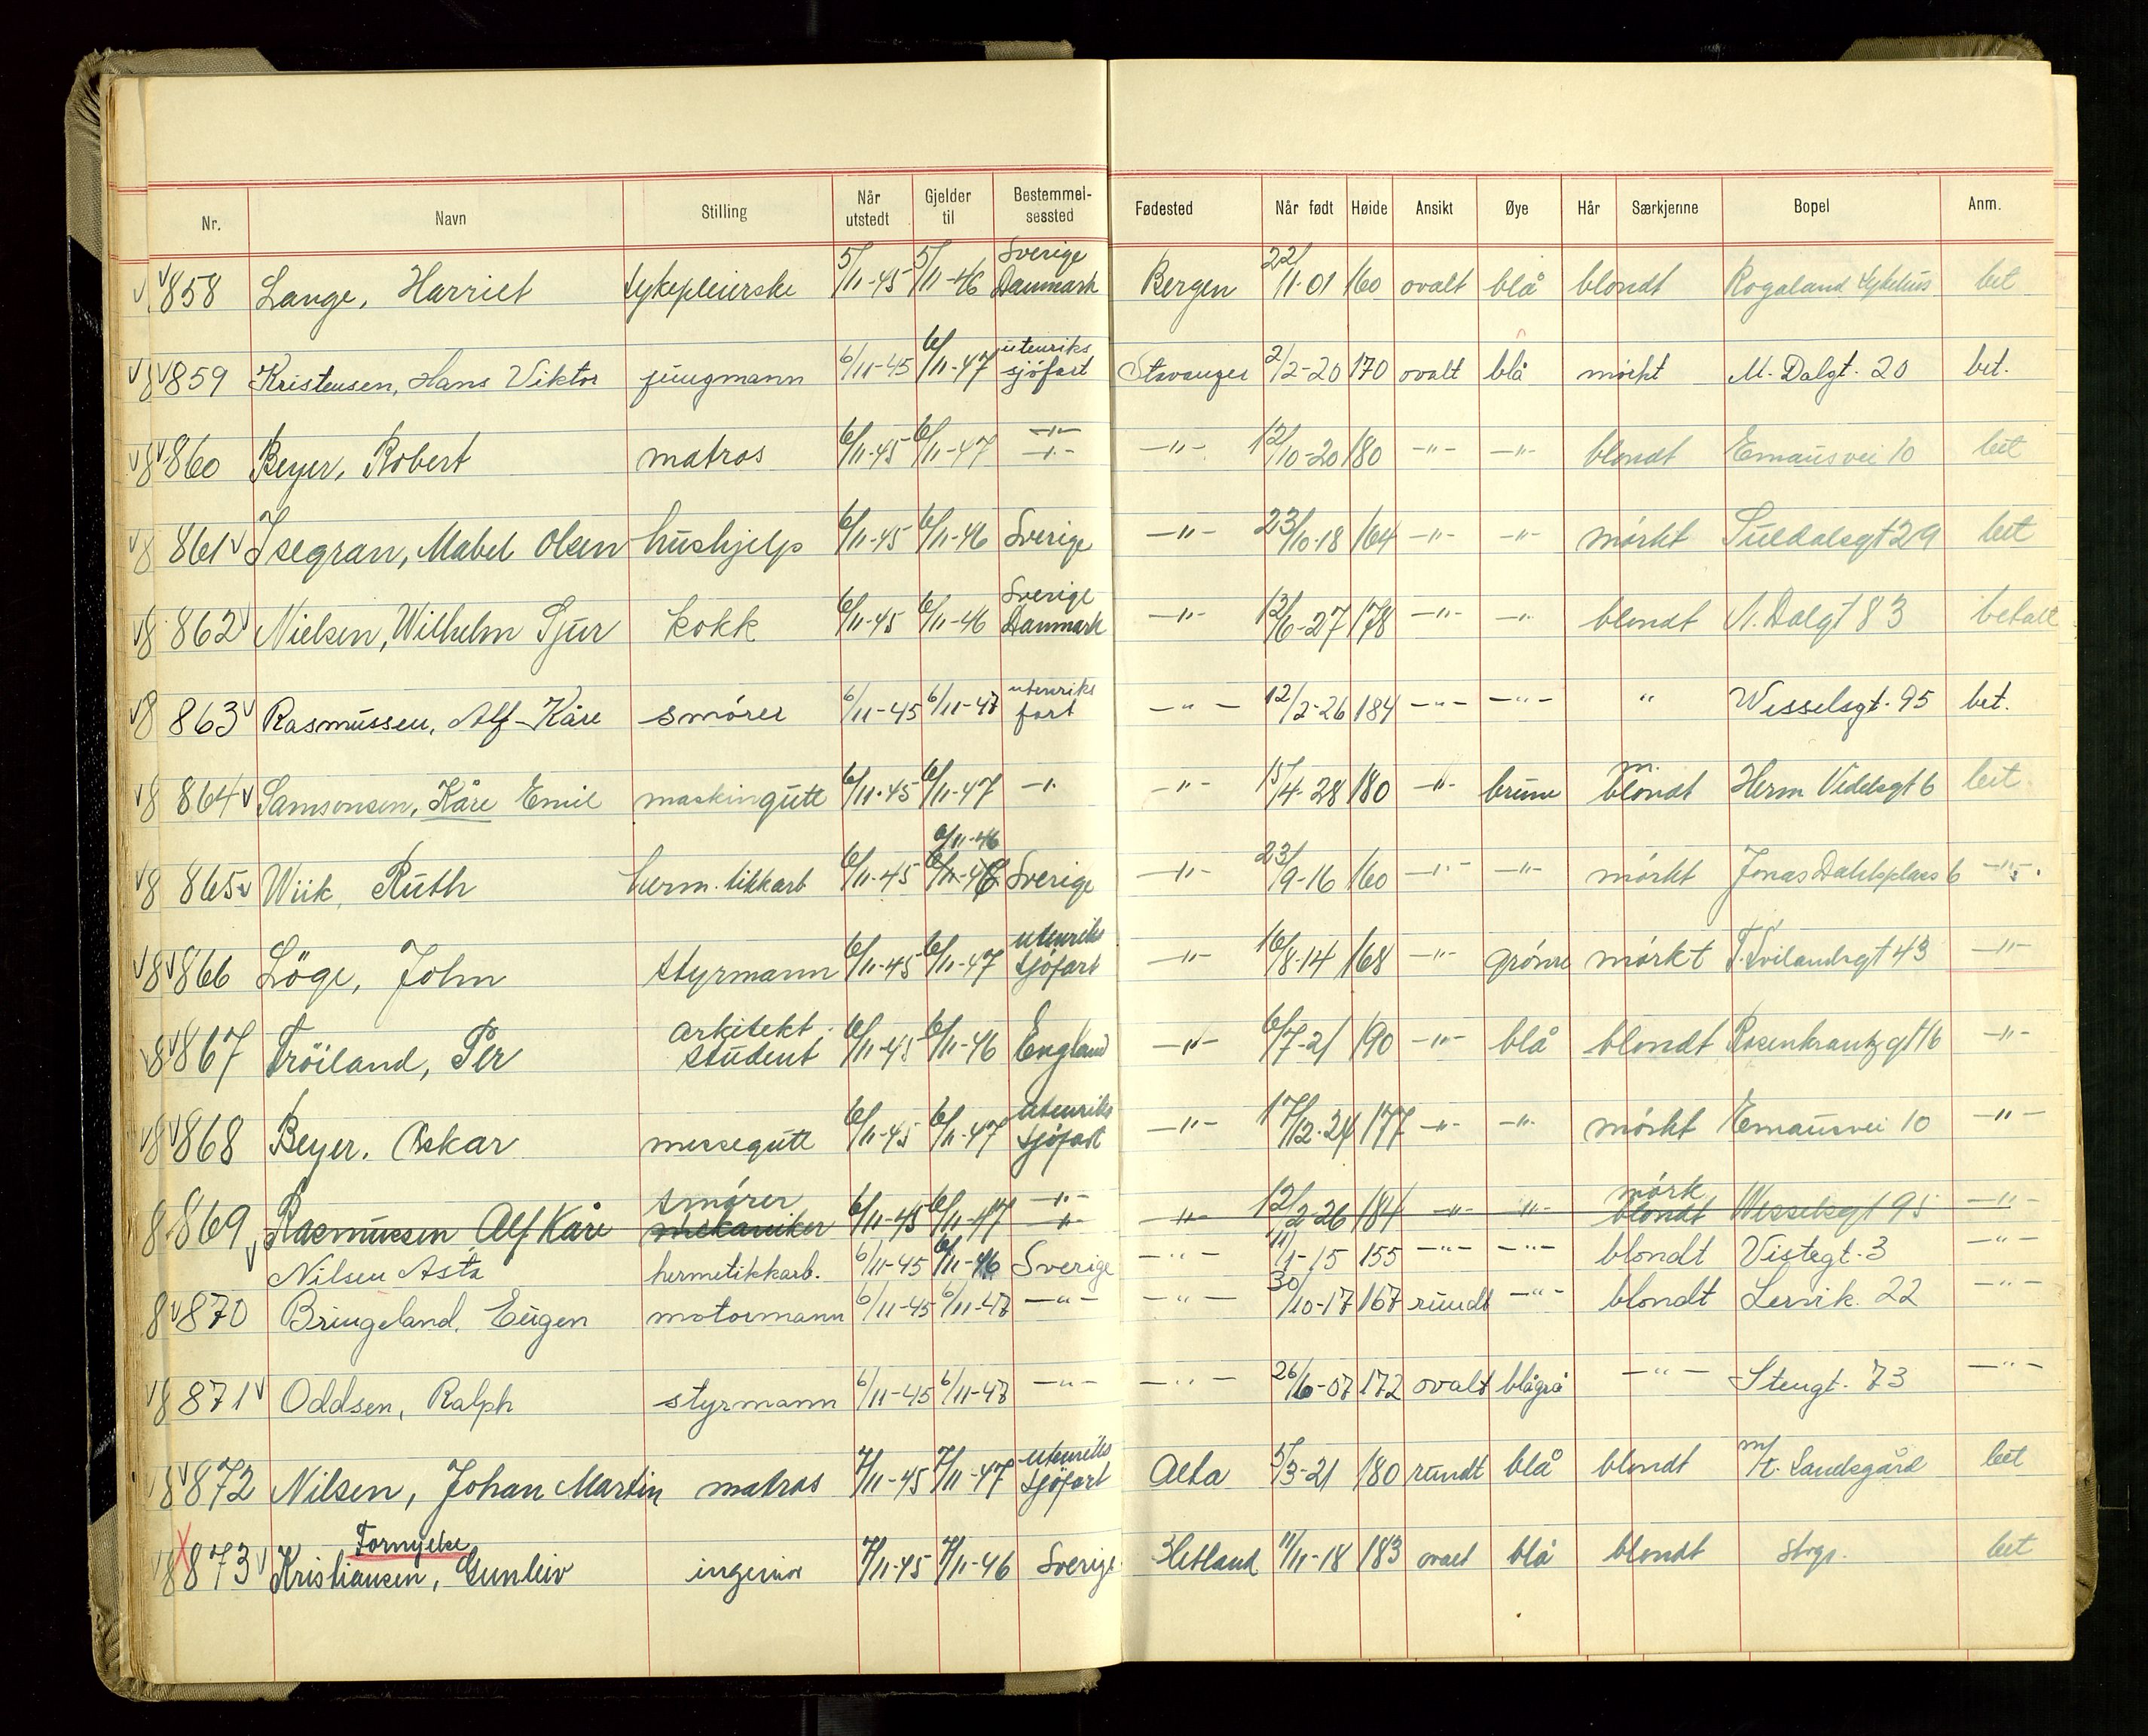 Nr. Navn Stilling Når utstedt Gjelder til Bestemmel-sessted Fødested Når født Høide Ansikt Øye Hår Særkjenne Bopel Anm.
858 Lange, Harriet sykepleierske 5/11-45 5/11-46 Sverige Danmark Bergen 22/11-01 160 ovalt blå blondt Rogaland sykehus bet
859 Kristensen, Hans Viktor jungmann 6/11-45 6/11-47 utenriks sjöfart Stavanger 2/2-20 170 ovalt blå mörkt M. Dalgt. 20 bet.
860 Beyer, Robert matros 6/11-45 6/11-47 -"- -"- -"- 12/10-20 180 -"- -"- blondt Emausvei 10 bet
861 Isegran, Mabel Olsen hushjelp 6/11-45 6/11-46 Sverige -"- 23/10-18 164 -"- -"- mörkt Suldalsgt 29 bet
862 Nielsen, Wilhelm Sjur kokk 6/11-45 6/11-46 Sverige Danmark -"- 12/6-27 178 -"- -"- blondt N. Dalgt 83 betalt
863 Rasmussen, Alf-Kåre smörer 6/11-45 6/11-47 utenriks fart -"- 12/2-26 184 -"- -"- " Wesselsgt. 95 bet.
864 Samsonsen, Kåre Emil maskingutt 6/11-45 6/11-47 -"- -"- 15/4-28 180 -"- brune m. blondt Herm Videlsgt 6 bet
865 Wiik, Ruth herm.tikkarb 6/11-45 6/11-46 6/11-46 Sverige -"- 23/9-16 160 -"- -"- mörkt Jonas Dahlsplass 6 -"-
866 Löge, John styrmann 6/11-45 6/11-47 utenriks sjöfart -"- 16/8-14 168 -"- grönne mörkt T. Svilandsgt 43 -"-
867 Tröiland, Per arkitekt student 6/11-45 6/11-46 England -"- 6/7-21 190 -"- blå blondt Rosenkrantzgt 16 -"-
868 Beyer, Oskar messegutt 6/11-45 6/11-47 utenriks sjöfart -"- 17/12-24 177 -"- -"- mörkt Emausvei 10 -"-
869 Rasmussen Alf Kåre smörer mekaniker 6/11-45 6/11-47 -"- -"- -"- 12/2-26 184 -"- -"- mörk blondt Wesselsgt 95 -"-
Nilsen Asta hermetikkarb. 6/11-45 6/11-46 Sverige -"- 11/1-15 155 -"- -"- blondt Vistegt. 3 -"-
870 Bringeland, Eugen motormann 6/11-45 6/11-47 -"- -"- 30/10-17 167 rundt -"- blondt Lervik. 22 -"-
871 Oddsen, Ralph styrmann 6/11-45 6/11-47 -"- -"- 26/6-07 172 ovalt blågrå -"- Stengt. 73 -"-
872 Nilsen, Johan Martin matros 7/11-45 7/11-47 utenriks sjöfart Alta 5/3-21 180 rundt blå blondt m/t. Sandsgård bet
Fornyelse
873 Kristiansen, Gunleiv ingeniör 7/11-45 7/11-46 Sverige Hetland 11/11-18 183 ovalt blå blondt Stvgr. bet